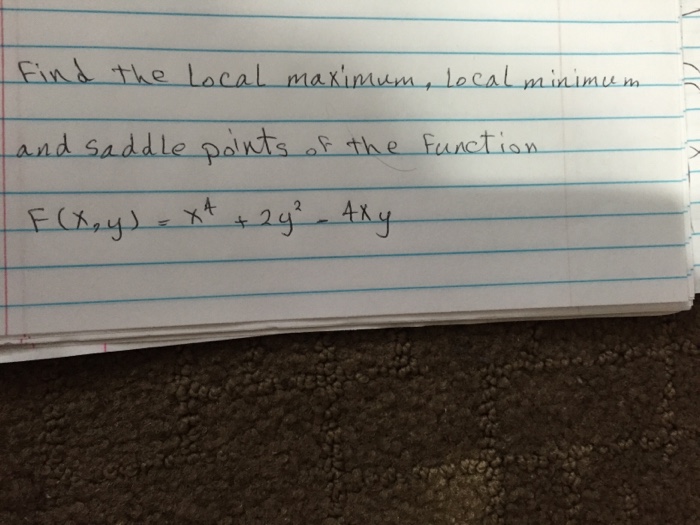 Find the Local maximum, local minimum
and saddle points of the Function
F(x,y) = x⁴ + 2y² - 4xy